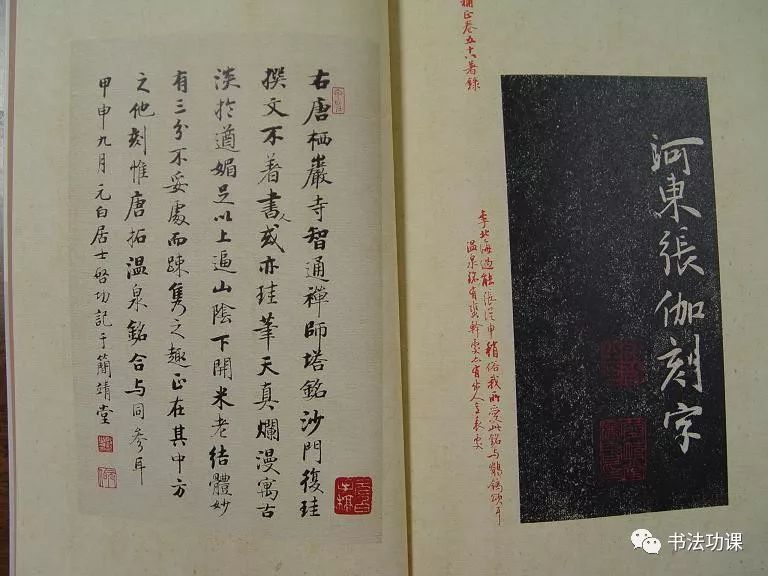 河東張伽刻字
李北海過能張從申稍俗我所愛此銘与鶺鴒頌耳
溫泉銘有
補正卷五十
著錄
右唐栖巖寺智通禪師塔銘沙門復珪
撰文不著書人或亦珪筆天真爛漫寓古
淡於遒媚足以上逼山陰下開米老結體妙
有三分不妥處而踈雋之趣正在其中方
之他刻惟唐拓溫泉銘合与同參耳
甲申九月元白居士啓功記于簡靖堂
书法功课